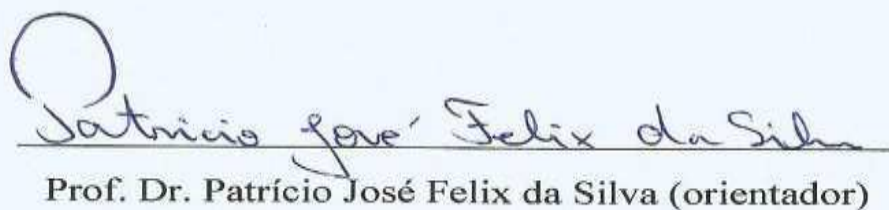 Patricio José Felix da Silva
Prof. Dr. Patrício José Felix da Silva (orientador)